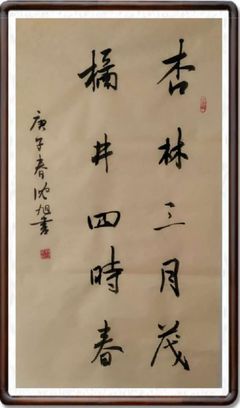 杏林三月茂
橘井四時春
庚子春沈旭書